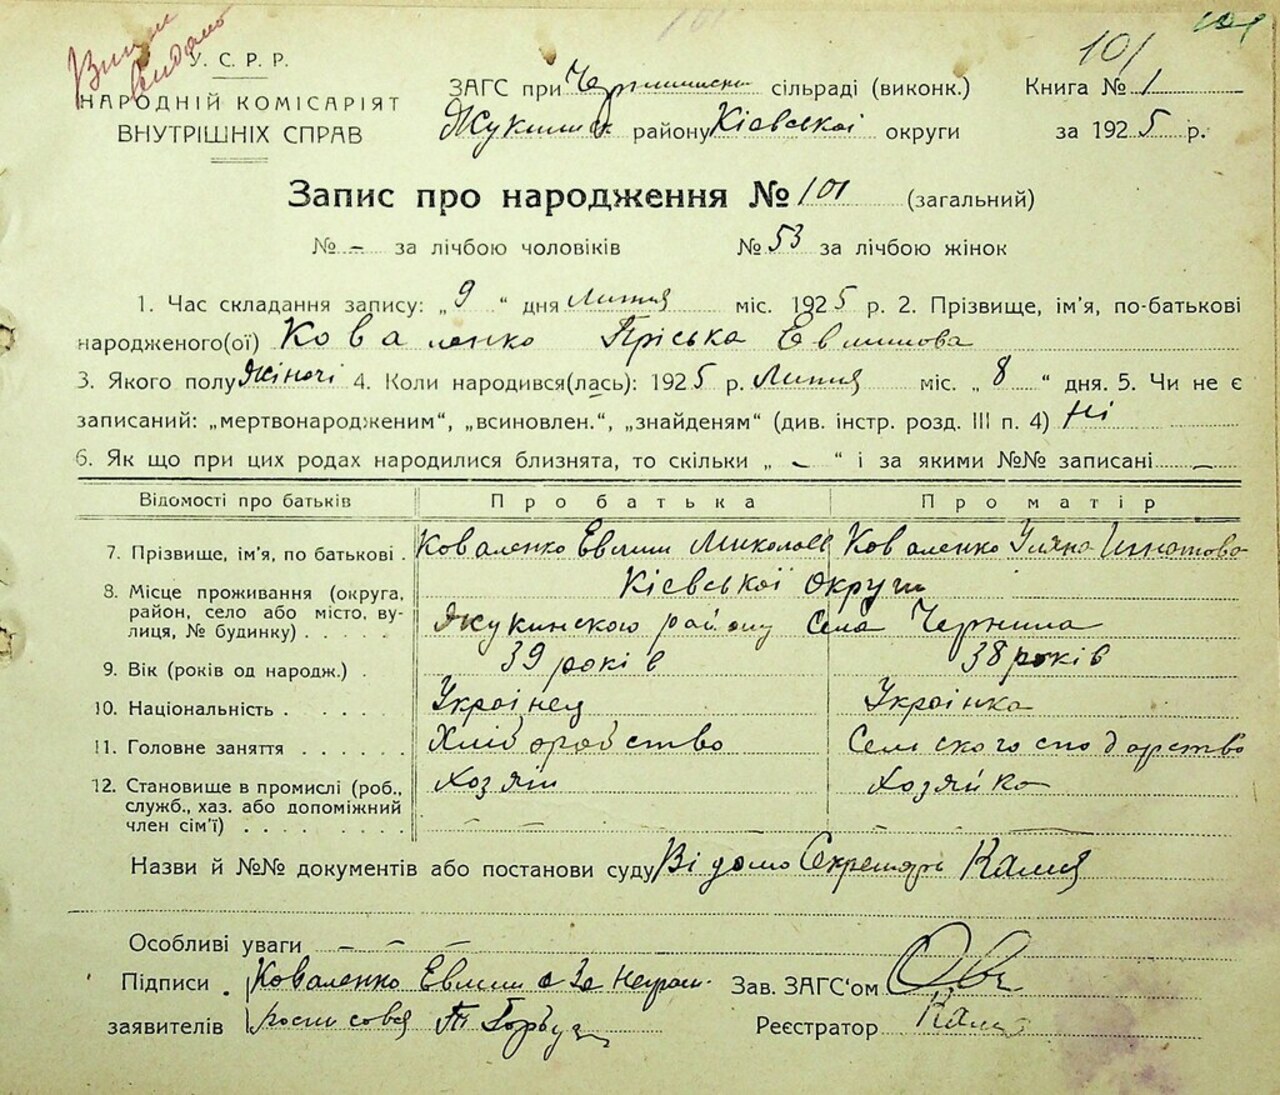 101
У. С. Р. Р.
НАРОДНІЙ КОМІСАРІЯТ
ВНУТРІШНІХ СПРАВ
ЗАГС при сільраді (виконк.)
району Кієвської округи
Книга № 1
за 1925 р.
Запис про народження № 101 (загальний)
№ – за лічбою чоловіків № 53 за лічбою жінок
1. Час складання запису: „9“ дня Липня міс. 1925 р. 2. Прізвище, ім'я, по-батькові
народженого(ої) Коваленко Пріська Евлипова
3. Якого полу жіночі 4. Коли народився(лась): 1925 р. Липня міс. „8“ дня. 5. Чи не є
записаний: „мертвонародженим“, „всиновлен.“, „знайденям“ (див. інстр. розд. III п. 4) Ні
6. Як що при цих родах народилися близнята, то скільки „ – “ і за якими №№ записані –
Відомості про батьків Про батька Про матір
7. Прізвище, ім'я, по батькові . Коваленко Евлип Миколаєв Коваленко Уляна Игнатова
8. Місце проживання (округа, Кієвської Округи
район, село або місто, ву-
лиця, № будинку) . . . . . району Села Чернина
9. Вік (років од народж.) . 39 років 38 років
10. Національність . . . . . Украінец Украінка
11. Головне заняття . . . . . . Хліборобство Сельского сподарство
12. Становище в промислі (роб., Хозяін Хозяйка
служб., хаз. або допоміжний
член сім'ї) . . . . . . . . – – – – – –
Назви й №№ документів або постанови суду Відомо Секретарь
Особливі уваги – – – –
Підписи Коваленко Евлип а За неграм.
заявителів росписовся
Зав. ЗАГС'ом
Реєстратор